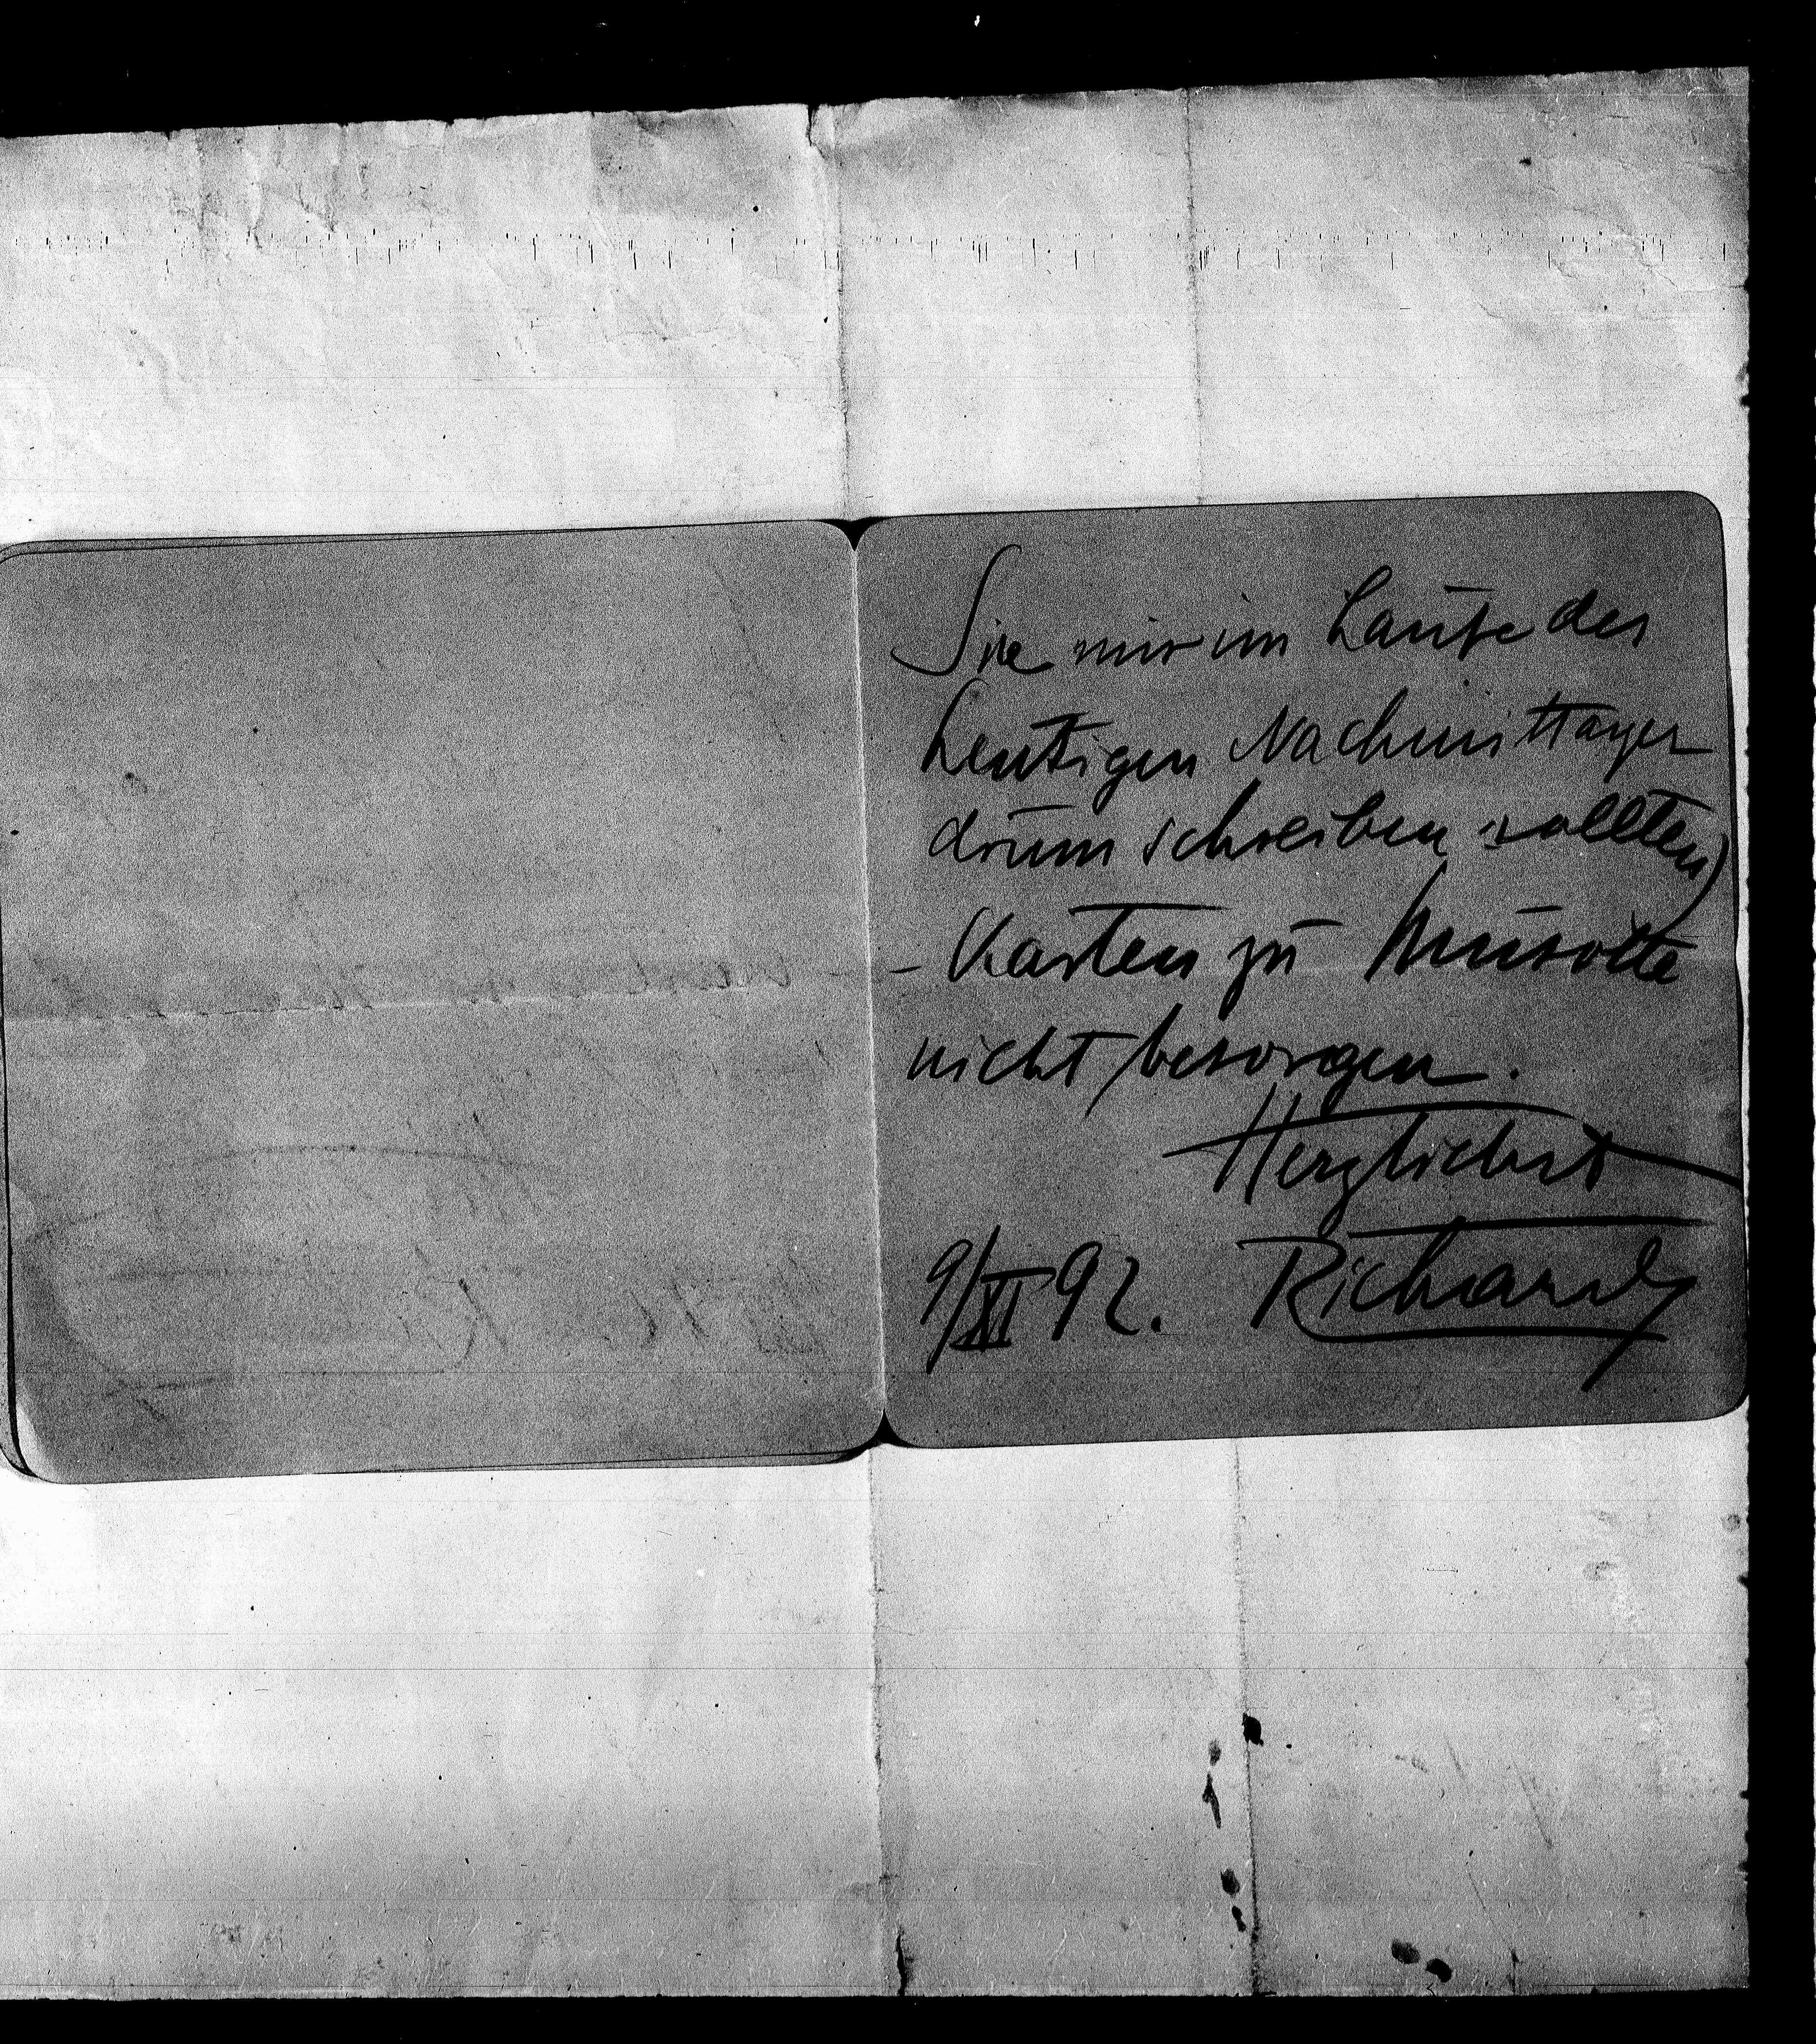 Sie mir im Laufe des
heutigen Nachmittages
drum schreiben sollten)
– Karten zu Musotte
nicht besorgen.
Herzlichst
9/XI 92. Richard